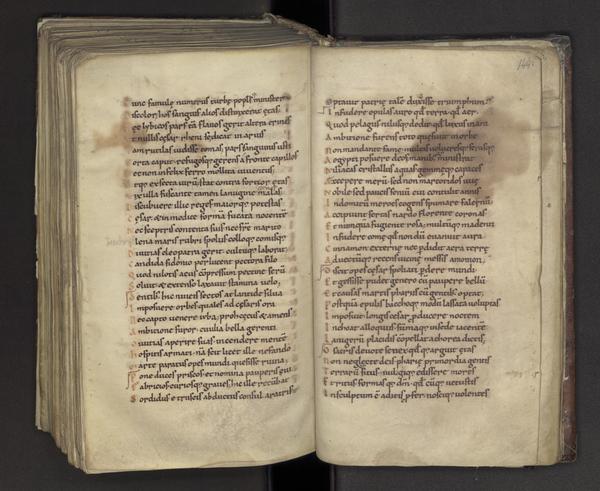 unc famulę numerus turbę popłsq; minister
iscolor, hos sanguis alios distinxerat ętas
ęc lybicos pars tā flauos gerit altera crines
t nullis cęsar rheni se dicat in aruis
am rutilas uidisse comas, pars sanguinis usti
orta caput refugosq; gerens a fronte capillos
ec non infelix ferro mollita iuuentus
tq; exsecta uirū, stat contra fortior ętas
ix ulla fuscante tamen lanugine malas
iscubuere illic reges maiorq; potestas
ęsar, & inmodice formā fucata nocentē
ec sceptris contenta suis nec fr̄e marito
lena maris rubri spoliis colloq; comisq;
iuitias cleopatra gerit cultuq; laborat
andida sidonio perlucent pectora filo
uod nilotis acus cōpressum pectine serū
oluit & extenso laxauit stamina uelo,
entib; hic niueis sectos atlantide silua
imposuere orbes quales ad cęsaris ora
ec capto uenere iuba, pro hcęcus & amens
Ambitione furor, ciuilia bella gerenti
iuitias aperire suas incendere mentē
ospitis armati, nā sit licet ille nefando
arte paratus opes mundi quęsisse ruina,
one duces priscos & nomina pauperis ęui
abricios curiosq; graues, hic ille recūbat
Sordidus etruscis abductus consul aratris
144
Optauit patrię talē duxisse triumphum.
Infudere epulas auro qd́ terra qd́ aer
Quod pelagus nilusq; dedit, qd́ luxus inani
Ambitione furens toto quęsiuit in orbe
Non mandante fame, multas uolucresq; ferasq;
Aegypti posuere deos manibusq; ministrat
Niliacas cristallus aquas gemmęq; capaces
Excepere merū, sed non mareotidos uuę
Nobile sed paucis seniū cui contulit annis
Indomitū meroe cogens spumare falernū
Accipiunt sertas nardo florente coronas
Et numqua fugiente rosa, multūq; madenti
Infudere comę qd́ non dū euanuit aura
Cinnamon externę nec pdidit aera terrę
Aduectūq; recens uicinę messis amomon
Discit opes cęsar spoliati pdere mundi
Et gessisse pudet genero cū paupere bellū
Et causas martis phariis cū gentib; optat,
Postquā epulis bacchoq; modū lassata uoluptas
Imposuit longis cęsar, pducere noctem
Inchoat alloquiis, sūmaq; in sede iacentē
Linigerū placidis cōpellat achorea dictis,
O sacris deuote senex qd́q; arguit ętas
Non neglecte deis pharię primordia gentis
Terrarū situs uulgiq; edissere mores
Et ritus formasq; dm̄, qd́ cūq; uetustis
Insculptum ē aditis pfer, nosciq; uolentes